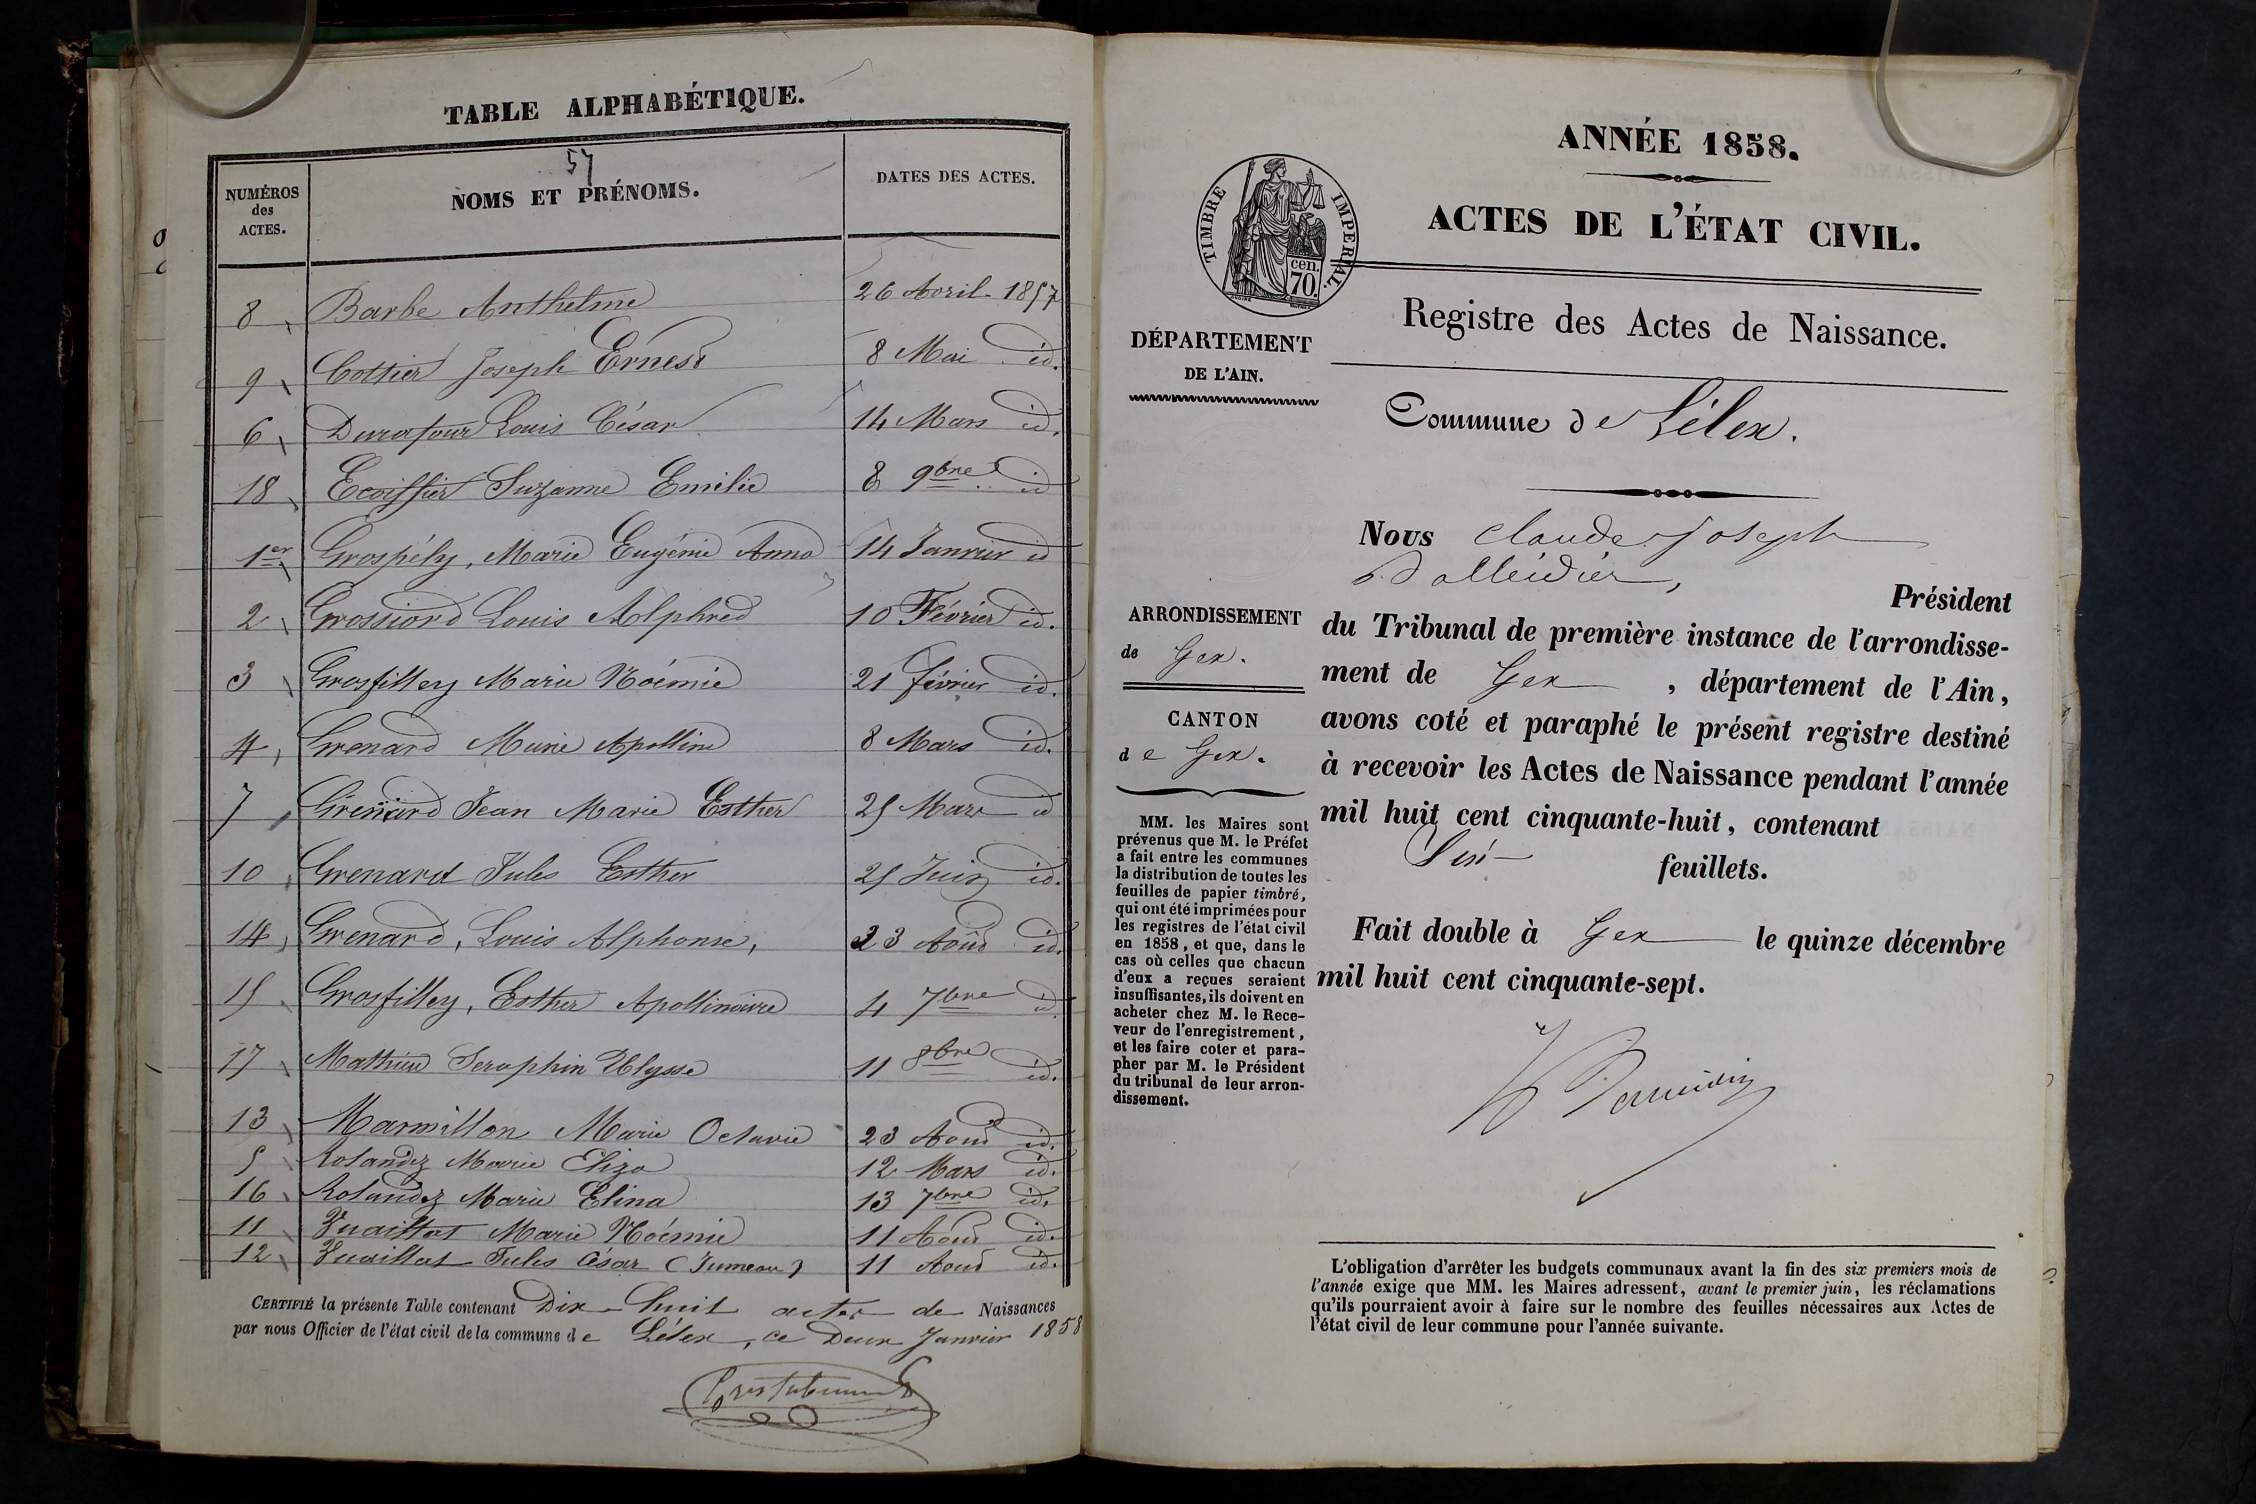 TABLE ALPHABÉTIQUE.
57
NUMÉROS des ACTES. NOMS ET PRÉNOMS. DATES DES ACTES.
8 Barbe Anthelme 26 Avril 1857
9 Cottier Joseph Ernest 8 Mai id.
6 Durafour Louis César 14 Mars id.
18 Ecoiffier Suzanne Emilie 8 9bre id
1er Grospély, Marie Eugénie Anna 14 Janvier id
2 Grossiord Louis Alphred 10 Février id.
3 Grosfilley Marie Noémie 21 février id.
4 Grenard Marie Apolline 8 Mars id.
7 Grenard Jean Marie Esther 25 Mars id
10 Grenard Jules Esther 25 Juin id.
14 Grenard, Louis Alphonse, 23 Août id.
15 Grosfilley, Esther Apollinaire 4 7bre id.
17 Mathieu Seraphin Ulysse 11 8bre id.
13 Marmillon Marie Octavie 23 Aout id.
5 Rolandez Marie Eliza 12 Mars id.
16 Rolandez Marie Elina 13 7bre id.
11 Vuaillat Marie Noémie 11 Aout id.
12 Vuaillat Jules César (Jumeau) 11 Aout id.
CERTIFIÉ la présente Table contenant Dix-huit actes de Naissances
par nous Officier de l'état civil de la commune de Lélex, ce Deux Janvier 1858
ANNÉE 1858.
ACTES DE L'ÉTAT CIVIL.
TIMBRE IMPERIAL.
cen.
70.
Registre des Actes de Naissance.
DÉPARTEMENT
DE L'AIN.
Commune de Lélex.
Nous Claude Joseph
Président
du Tribunal de première instance de l'arrondisse-
ment de Gex, département de l'Ain,
avons coté et paraphé le présent registre destiné
à recevoir les Actes de Naissance pendant l'année
mil huit cent cinquante-huit, contenant
Six feuillets.
Fait double à Gex le quinze décembre
mil huit cent cinquante-sept.
ARRONDISSEMENT
de Gex.
CANTON
de Gex.
MM. les Maires sont
prévenus que M. le Préfet
a fait entre les communes
la distribution de toutes les
feuilles de papier timbré,
qui ont été imprimées pour
les registres de l'état civil
en 1858, et que, dans le
cas où celles que chacun
d'eux a reçues seraient
insuffisantes, ils doivent en
acheter chez M. le Rece-
veur de l'enregistrement,
et les faire coter et para-
pher par M. le Président
du tribunal de leur arron-
dissement.
L'obligation d'arrêter les budgets communaux avant la fin des six premiers mois de
l'année exige que MM. les Maires adressent, avant le premier juin, les réclamations
qu'ils pourraient avoir à faire sur le nombre des feuilles nécessaires aux Actes de
l'état civil de leur commune pour l'année suivante.